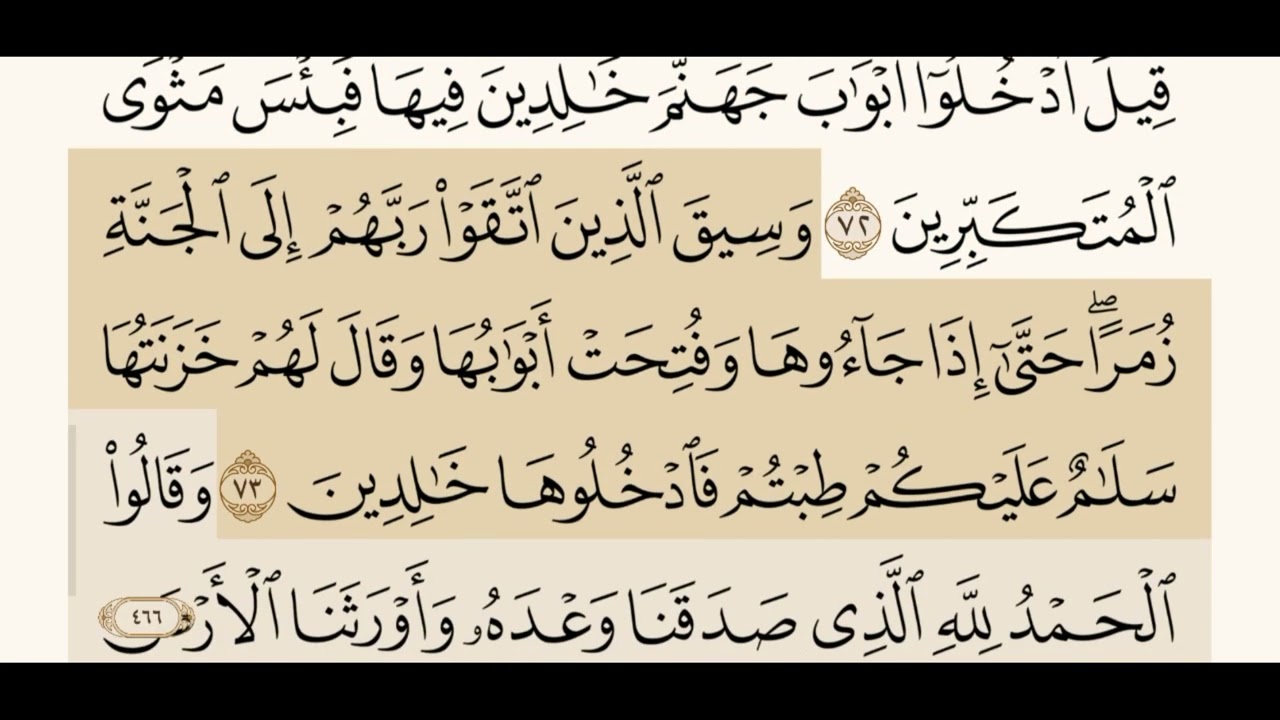 قِيلَ ٱدۡخُلُوٓاْ أَبۡوَٰبَ جَهَنَّمَ خَٰلِدِينَ فِيهَا فَبِئۡسَ مَثۡوَى
ٱلۡمُتَكَبِّرِينَ ٧٢ وَسِيقَ ٱلَّذِينَ ٱتَّقَوۡاْ رَبَّهُمۡ إِلَى ٱلۡجَنَّةِ
زُمَرًاۖ حَتَّىٰٓ إِذَا جَآءُوهَا وَفُتِحَتۡ أَبۡوَٰبُهَا وَقَالَ لَهُمۡ خَزَنَتُهَا
سَلَٰمٌ عَلَيۡكُمۡ طِبۡتُمۡ فَٱدۡخُلُوهَا خَٰلِدِينَ ٧٣ وَقَالُواْ
ٱلۡحَمۡدُ لِلَّهِ ٱلَّذِي صَدَقَنَا وَعۡدَهُۥ وَأَوۡرَثَنَا ٱلۡأَرۡضَ
٤٦٦